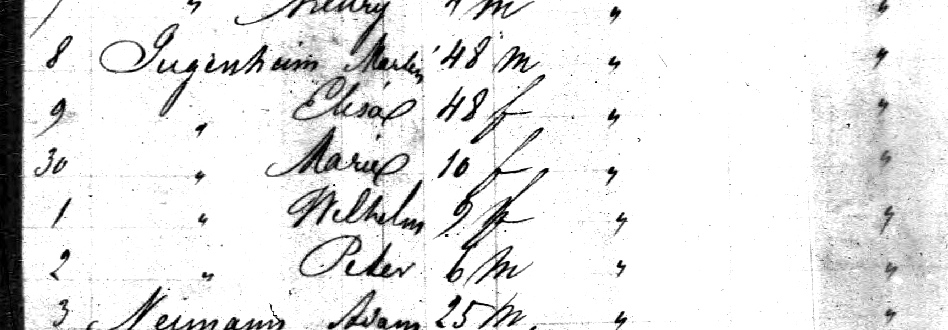 " Henry 4 m " "
8 Jugenheim Martin 48 m " "
9 " Elisa 48 f " "
30 " Marie 10 f " "
1 " Wilhelm 9 f " "
2 " Peter 6 m " "
3 Neumann Adam 25 m. " "